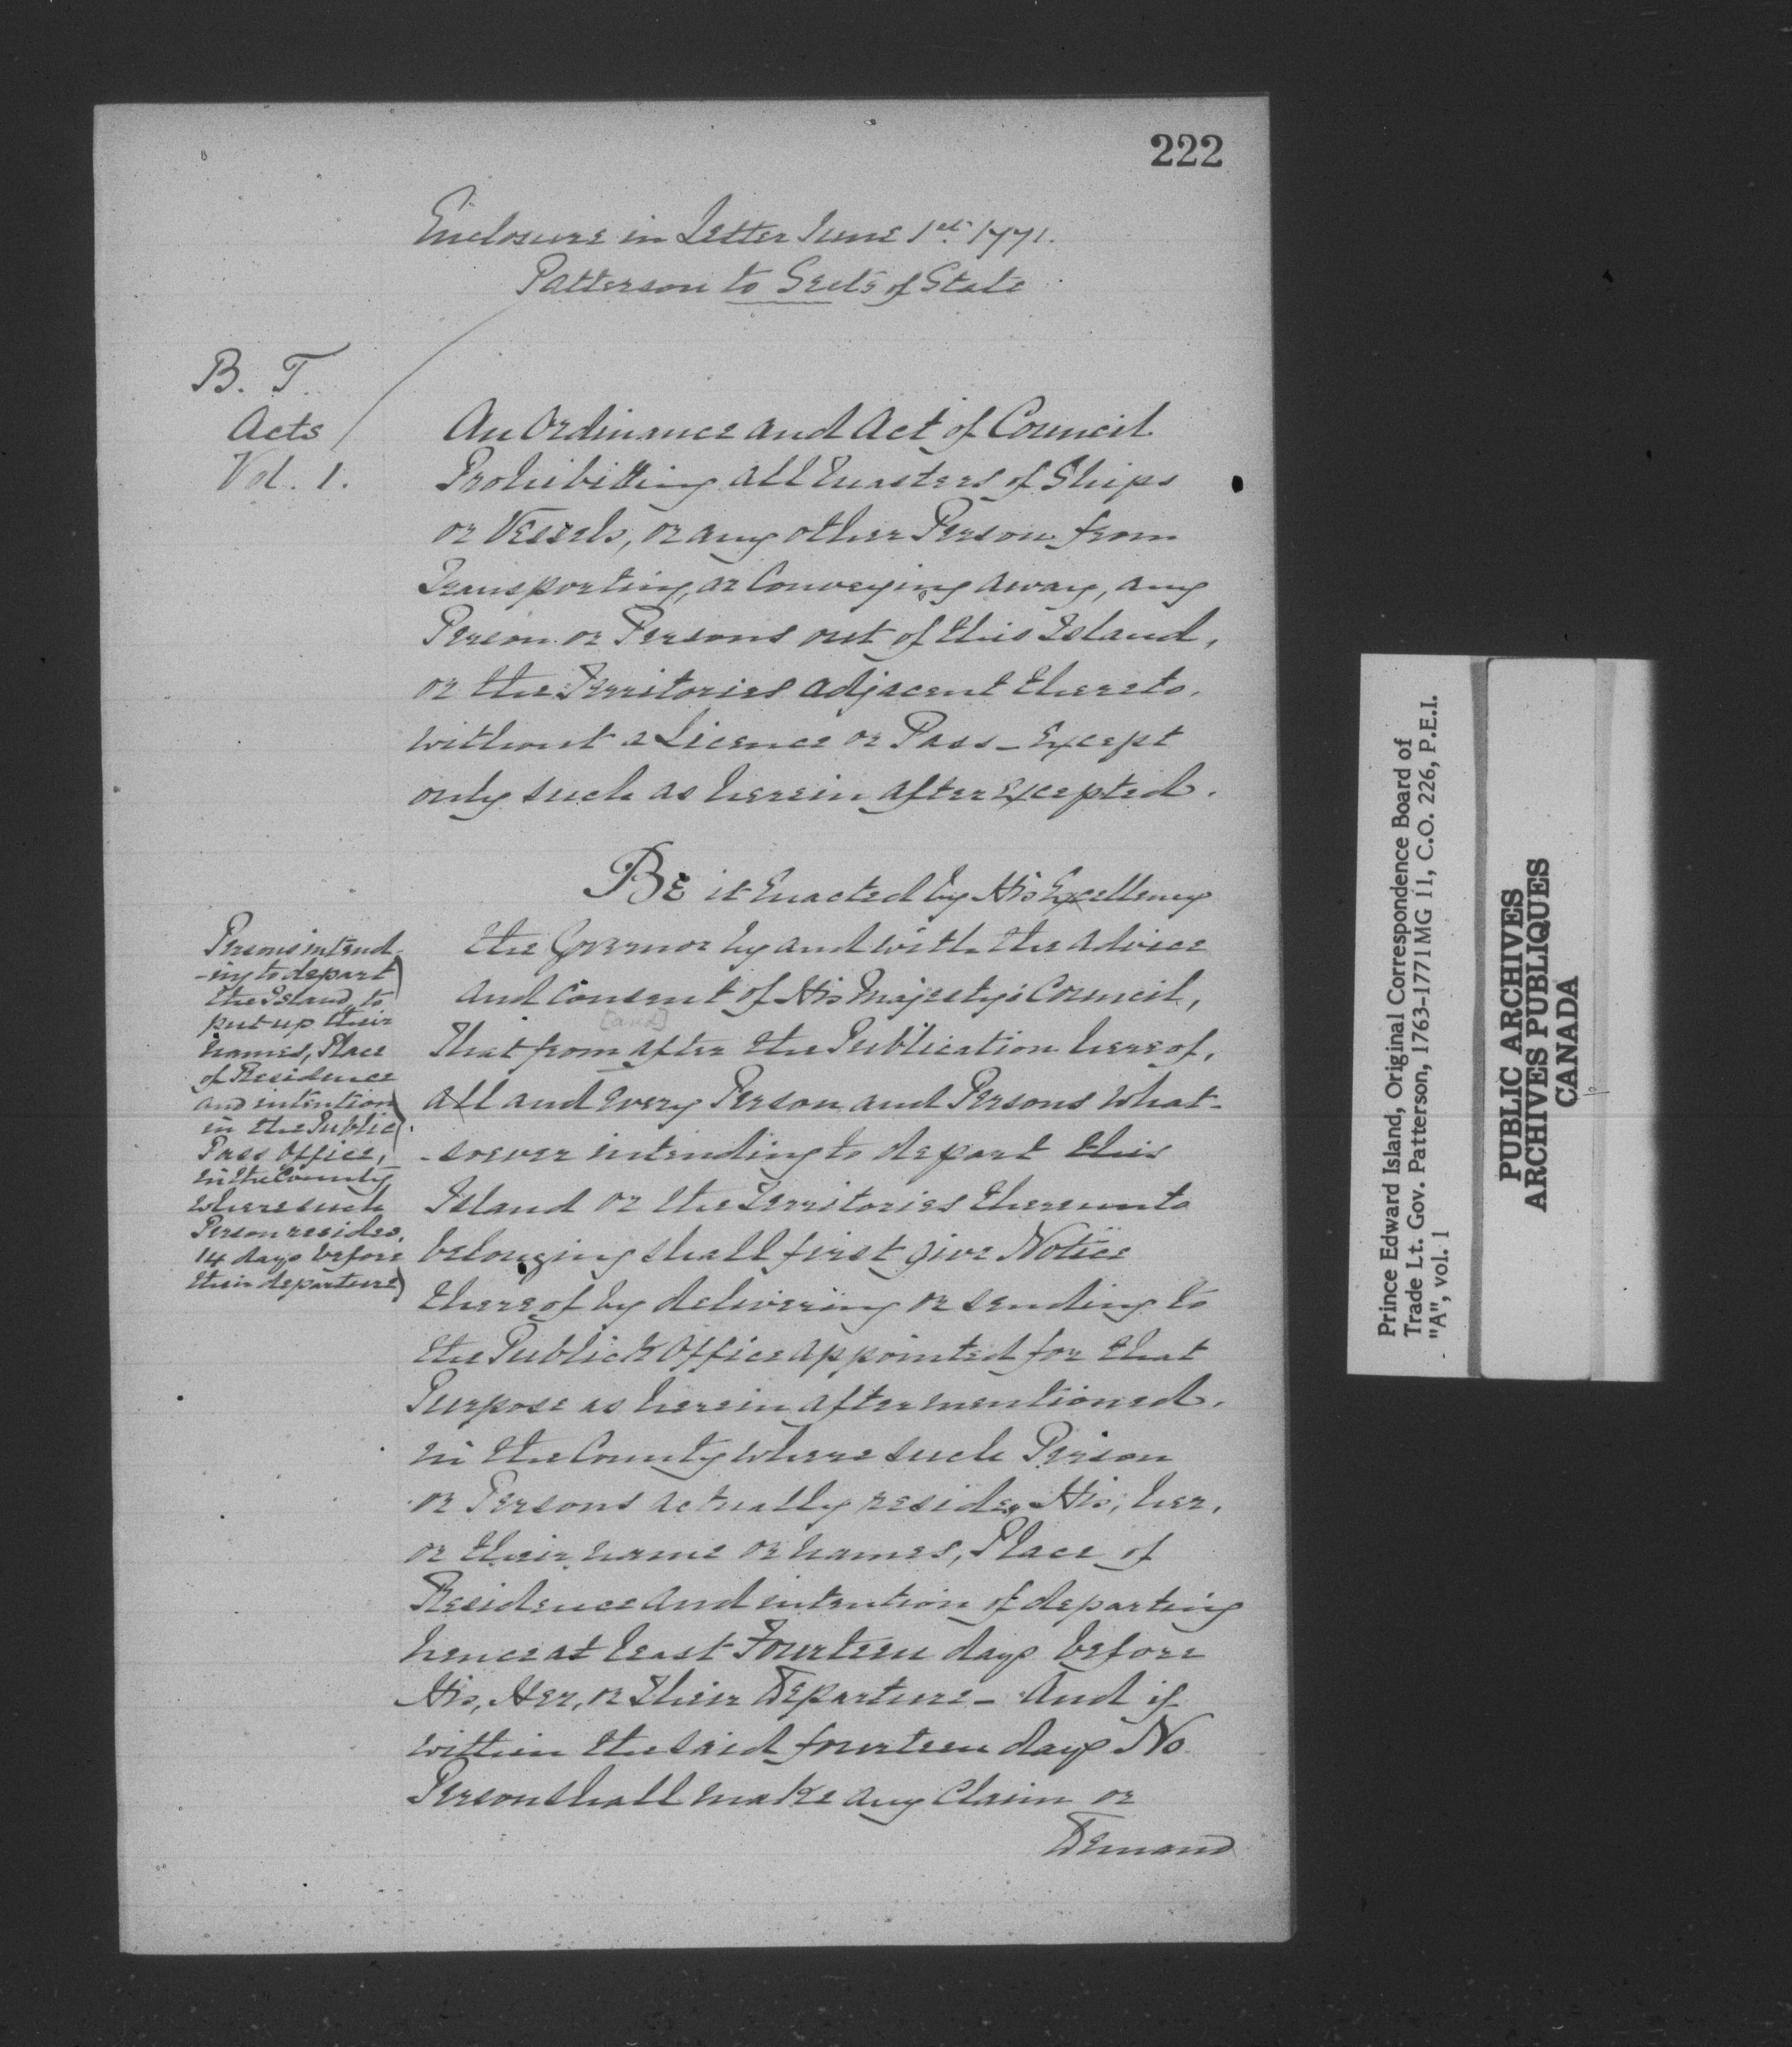 222
Enclosure in Letter June 1st 1771.
Patterson to Secty of State
B. T.
Acts
Vol. 1.
An Ordinance and Act of Council
Prohibitting all Masters of Ships
or Vessels, or any other Person from
Transporting, or Conveying away, any
Person or Persons out of this Island,
or the Territories adjacent thereto,
without a Licence or Pass - Except
only such as herein after Excepted.
Be it Enacted by His Excellency
the Governor by and with the advice
and Consent of His Majesty's Council,
[and]
That from after the Publication hereof,
all and Every Person and Persons what-
-soever intending to depart this
Island or the Territories thereunto
belonging shall first give Notice
thereof by delivering or sending to
the Publick Office appointed for that
Purpose as herein after mentioned,
in the County where such Person
or Persons actually resides, His, her,
or their name or names, Place of
Residence and intention of departing
hence at least Fourteen days before
His, Her, or Their Departure - And if
within the said fourteen days No
Person shall make any Claim or
Demand
Persons intend-
-ing to depart
the Island, to
put up their
names, Place
of Residence
and intention
in the Public
Pass Office,
in the County
where such
Person resides,
14 days before
their departure
Prince Edward Island, Original Correspondence Board of
Trade Lt. Gov. Patterson, 1763-1771 MG 11, C.O. 226, P.E.I.
"A", vol. 1
PUBLIC ARCHIVES
ARCHIVES PUBLIQUES
CANADA